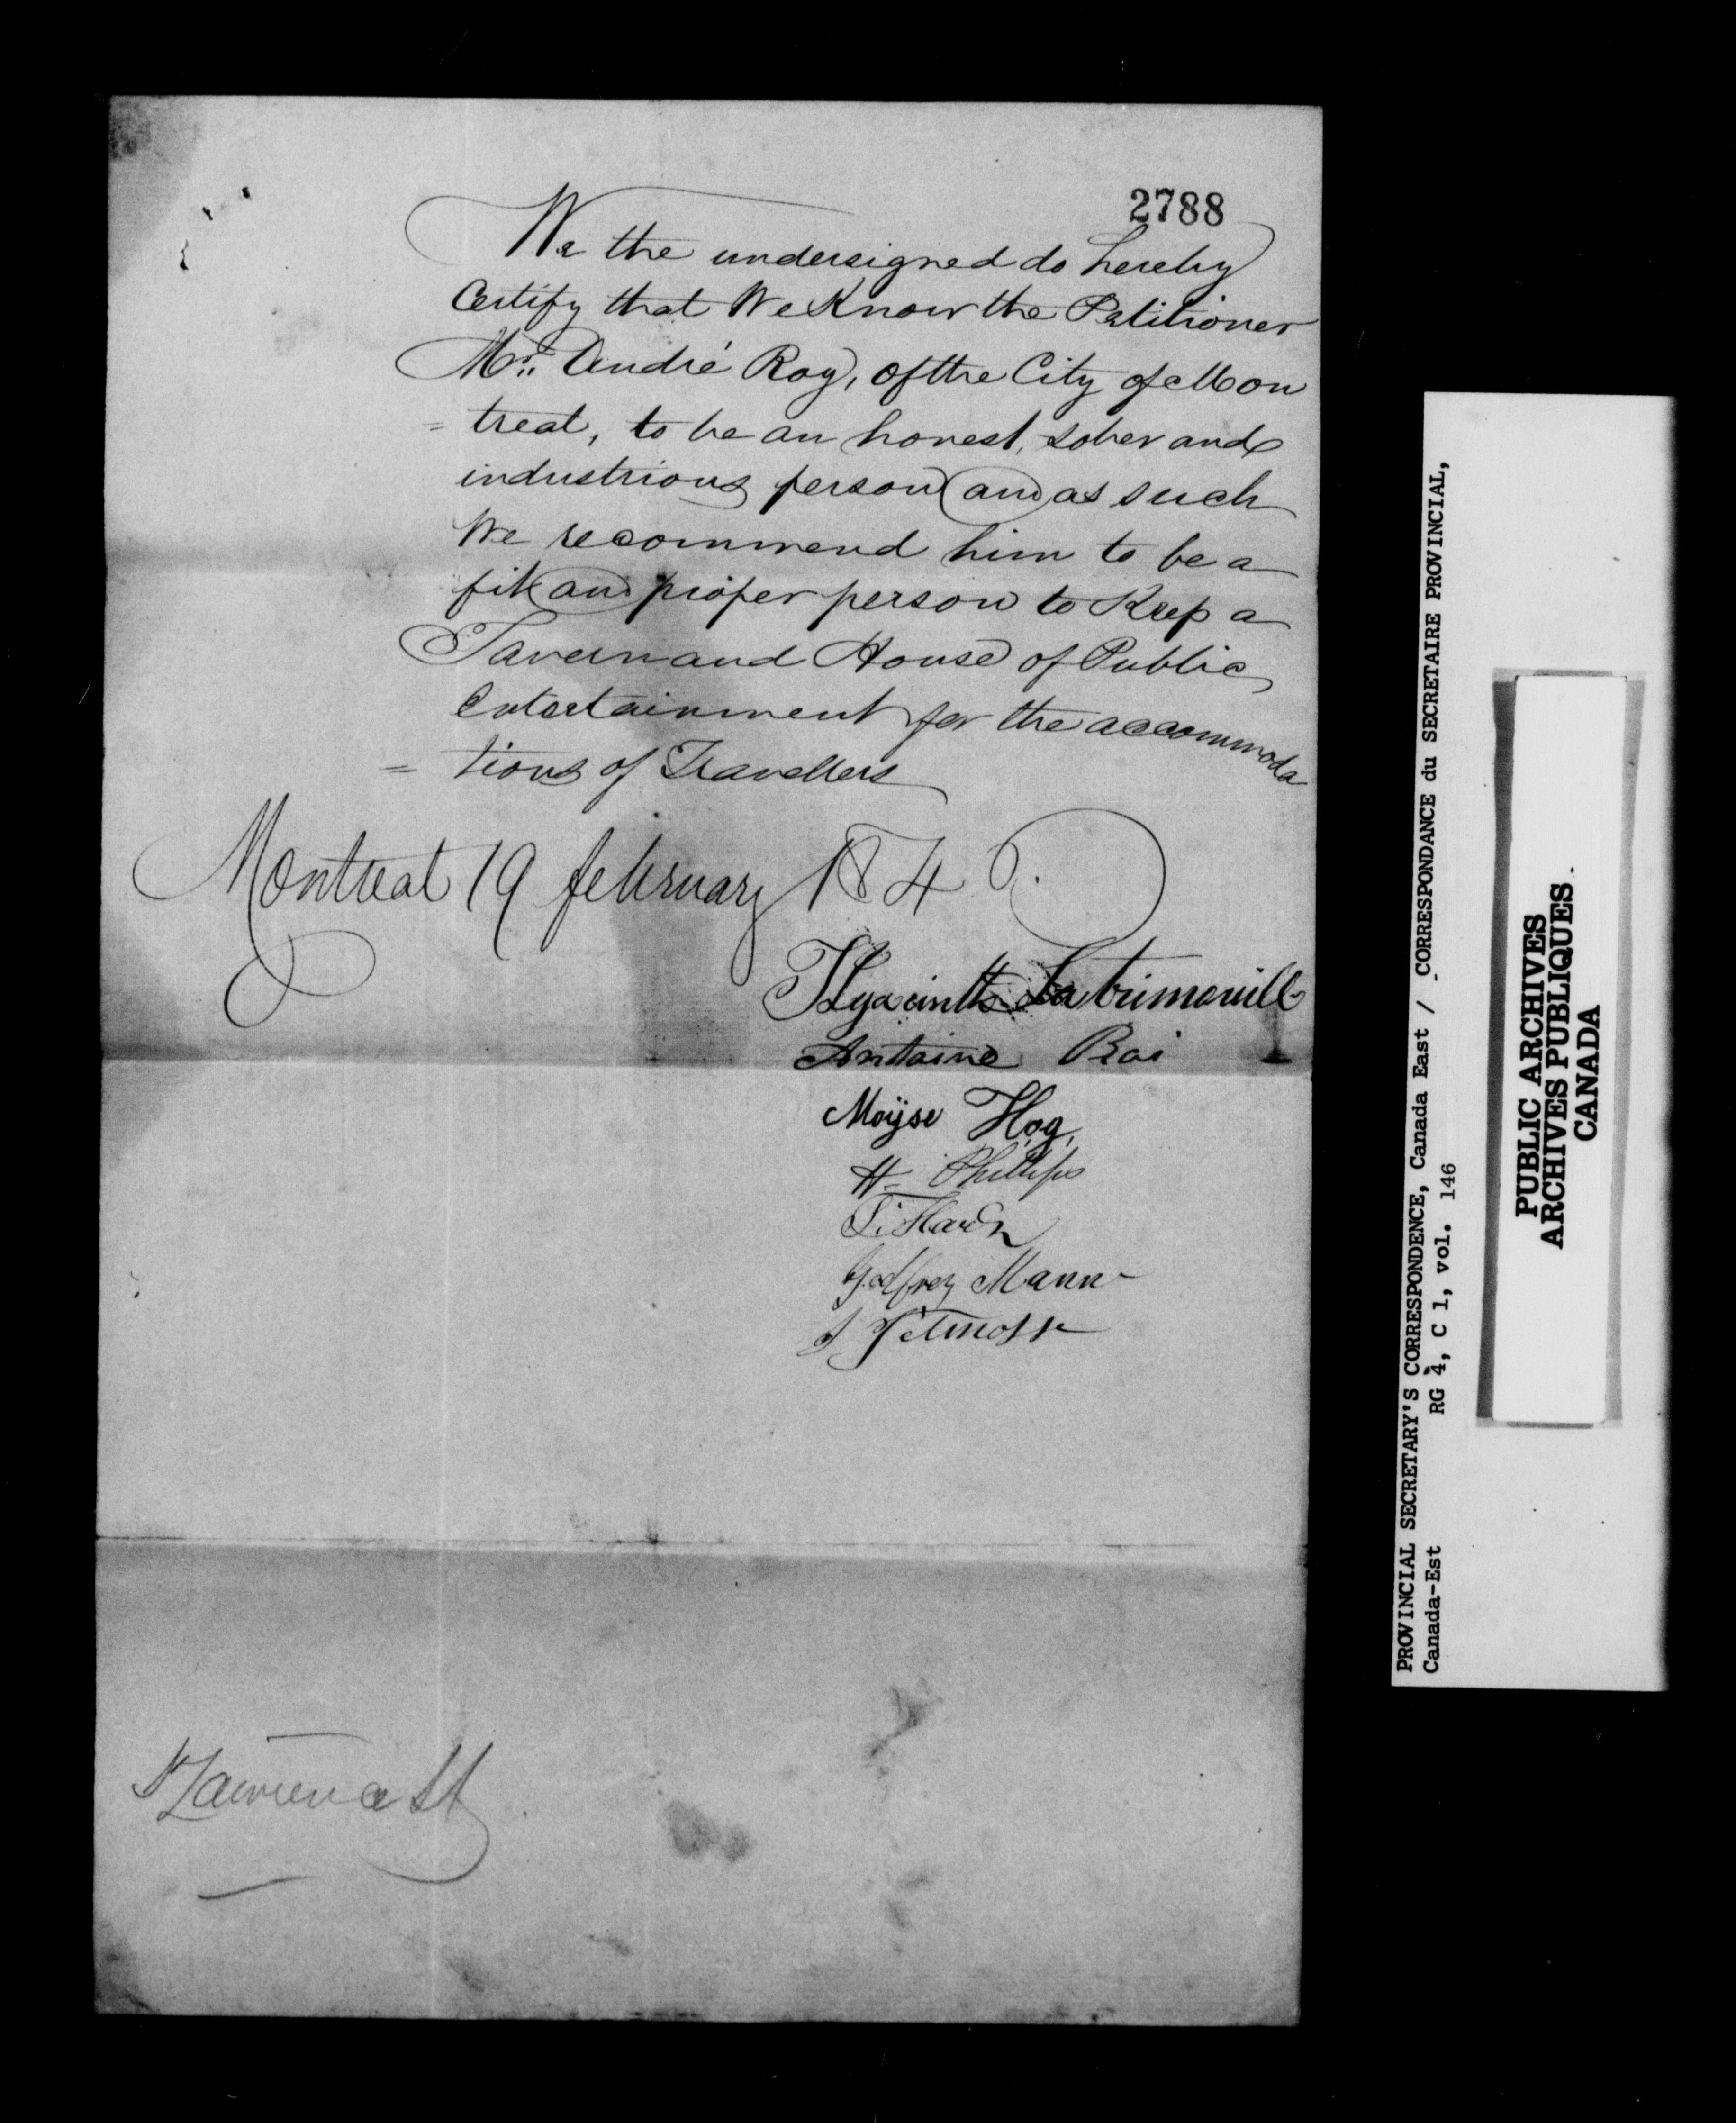 2788
We the undersigned do hereby
Certify that We Know the Petitioner
Mr. André Roy, of the City of Mon
= treal, to be an honest, sober and
industrious person and as such
We recommend him to be a
fit and proper person to Keep a
Tavern and House of Public
Entertainment for the accommoda
= tions of Travellers
Montreal 19 february 184
Hyacinthe Latrimouille
Antoine Roi
Moÿse Hog
H. Phillips
Godfrey Mann
St Lawrence St
PROVINCIAL SECRETARY'S CORRESPONDENCE, Canada East / CORRESPONDANCE du SECRETAIRE PROVINCIAL,
Canada-Est RG 4, C 1, vol. 146
PUBLIC ARCHIVES
ARCHIVES PUBLIQUES
CANADA